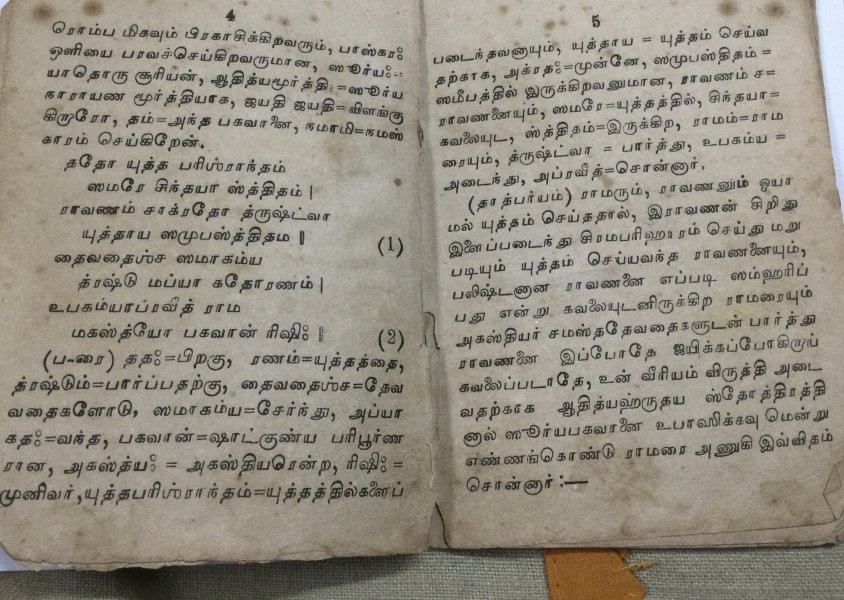 4
ரொம்ப மிகவும் பிரகாசிக்கிறவரும், பாஸ்கரஃ
ஒளியை பரவச்செய்கிறவருமான, ஸூர்யஃ=
யாதொரு சூரியன், ஆதித்யமூர்த்திஃ=ஸூர்ய
நாராயண மூர்த்தியாக, ஜயதி ஜயதி=விளங்கு
கிருரோ, தம்=அந்த பகவானை, நமாமி=நமஸ்
காரம் செய்கிறேன்.
ததோ யுத்த பரிஶ்ராந்தம்
ஸமரே சிந்தயா ஸ்த்திதம் |
ராவணம் சாக்ரதோ த்ருஷ்ட்வா
யுத்தாய ஸமுபஸ்த்திதம ‖ (1)
தைவதைஶ்ச ஸமாகம்ய
த்ரஷ்டு மப்யா கதோரணம் |
உபகம்யாப்ரவீத் ராம
மகஸ்த்யோ பகவான் ரிஷிஃ ‖ (2)
(ப-ரை) ததஃ=பிறகு, ரணம்=யுத்தத்தை,
த்ரஷ்டும்=பார்ப்பதற்கு, தைவதைஶ்ச=தேவ
வதைகளோடு, ஸமாகம்ய=சேர்ந்து, அப்யா
கதஃ=வந்த, பகவான்=ஷாட்குண்ய பரிபூர்ண
ரான, அகஸ்த்யஃ = அகஸ்தியரென்ற, ரிஷிஃ =
முனிவர், யுத்தபரிஶ்ராந்தம்=யுத்தத்தில்களைப்
5
படைந்தவனாயும், யுத்தாய = யுத்தம் செய்வ
தற்காக, அக்ரதஃ=முன்னே, ஸமுபஸ்திதம் =
ஸமீபத்தில் இருக்கிறவனுமான, ராவணம் ச=
ராவணனையும், ஸமரே=யுத்தத்தில், சிந்தயா=
கவலையுட, ஸ்த்திதம்=இருக்கிற, ராமம்=ராம
ரையும், த்ருஷ்ட்வா = பார்த்து, உபகம்ய =
அடைந்து, அப்ரவீத்=சொன்னார்.
(தாத்பர்யம்) ராமரும், ராவணனும் ஓயா
மல் யுத்தம் செய்ததால், இராவணன் சிறிது
இளைப்படைந்து சிரமபரிஹாரம் செய்து மறு
படியும் யுத்தம் செய்யவந்த ராவணனையும்,
பலிஷ்டனான ராவணனை எப்படி ஸம்ஹரிப்
பது என்று கவலையுடனிருக்கிற ராமரையும்
அகஸ்தியர் சமஸ்ததேவதைகளுடன் பார்த்து
ராவணனை இப்போதே ஜயிக்கப்போகிறாய்
கவலைப்படாதே, உன் வீரியம் விருத்தி அடை
வதற்காக ஆதித்யஹ்ருதய ஸ்தோத்திரத்தி
னால் ஸூர்யபகவானை உபாஸிக்கவு மென்று
எண்ணங்கொண்டு ராமரை அணுகி இவ்விதம்
சொன்னார்:—